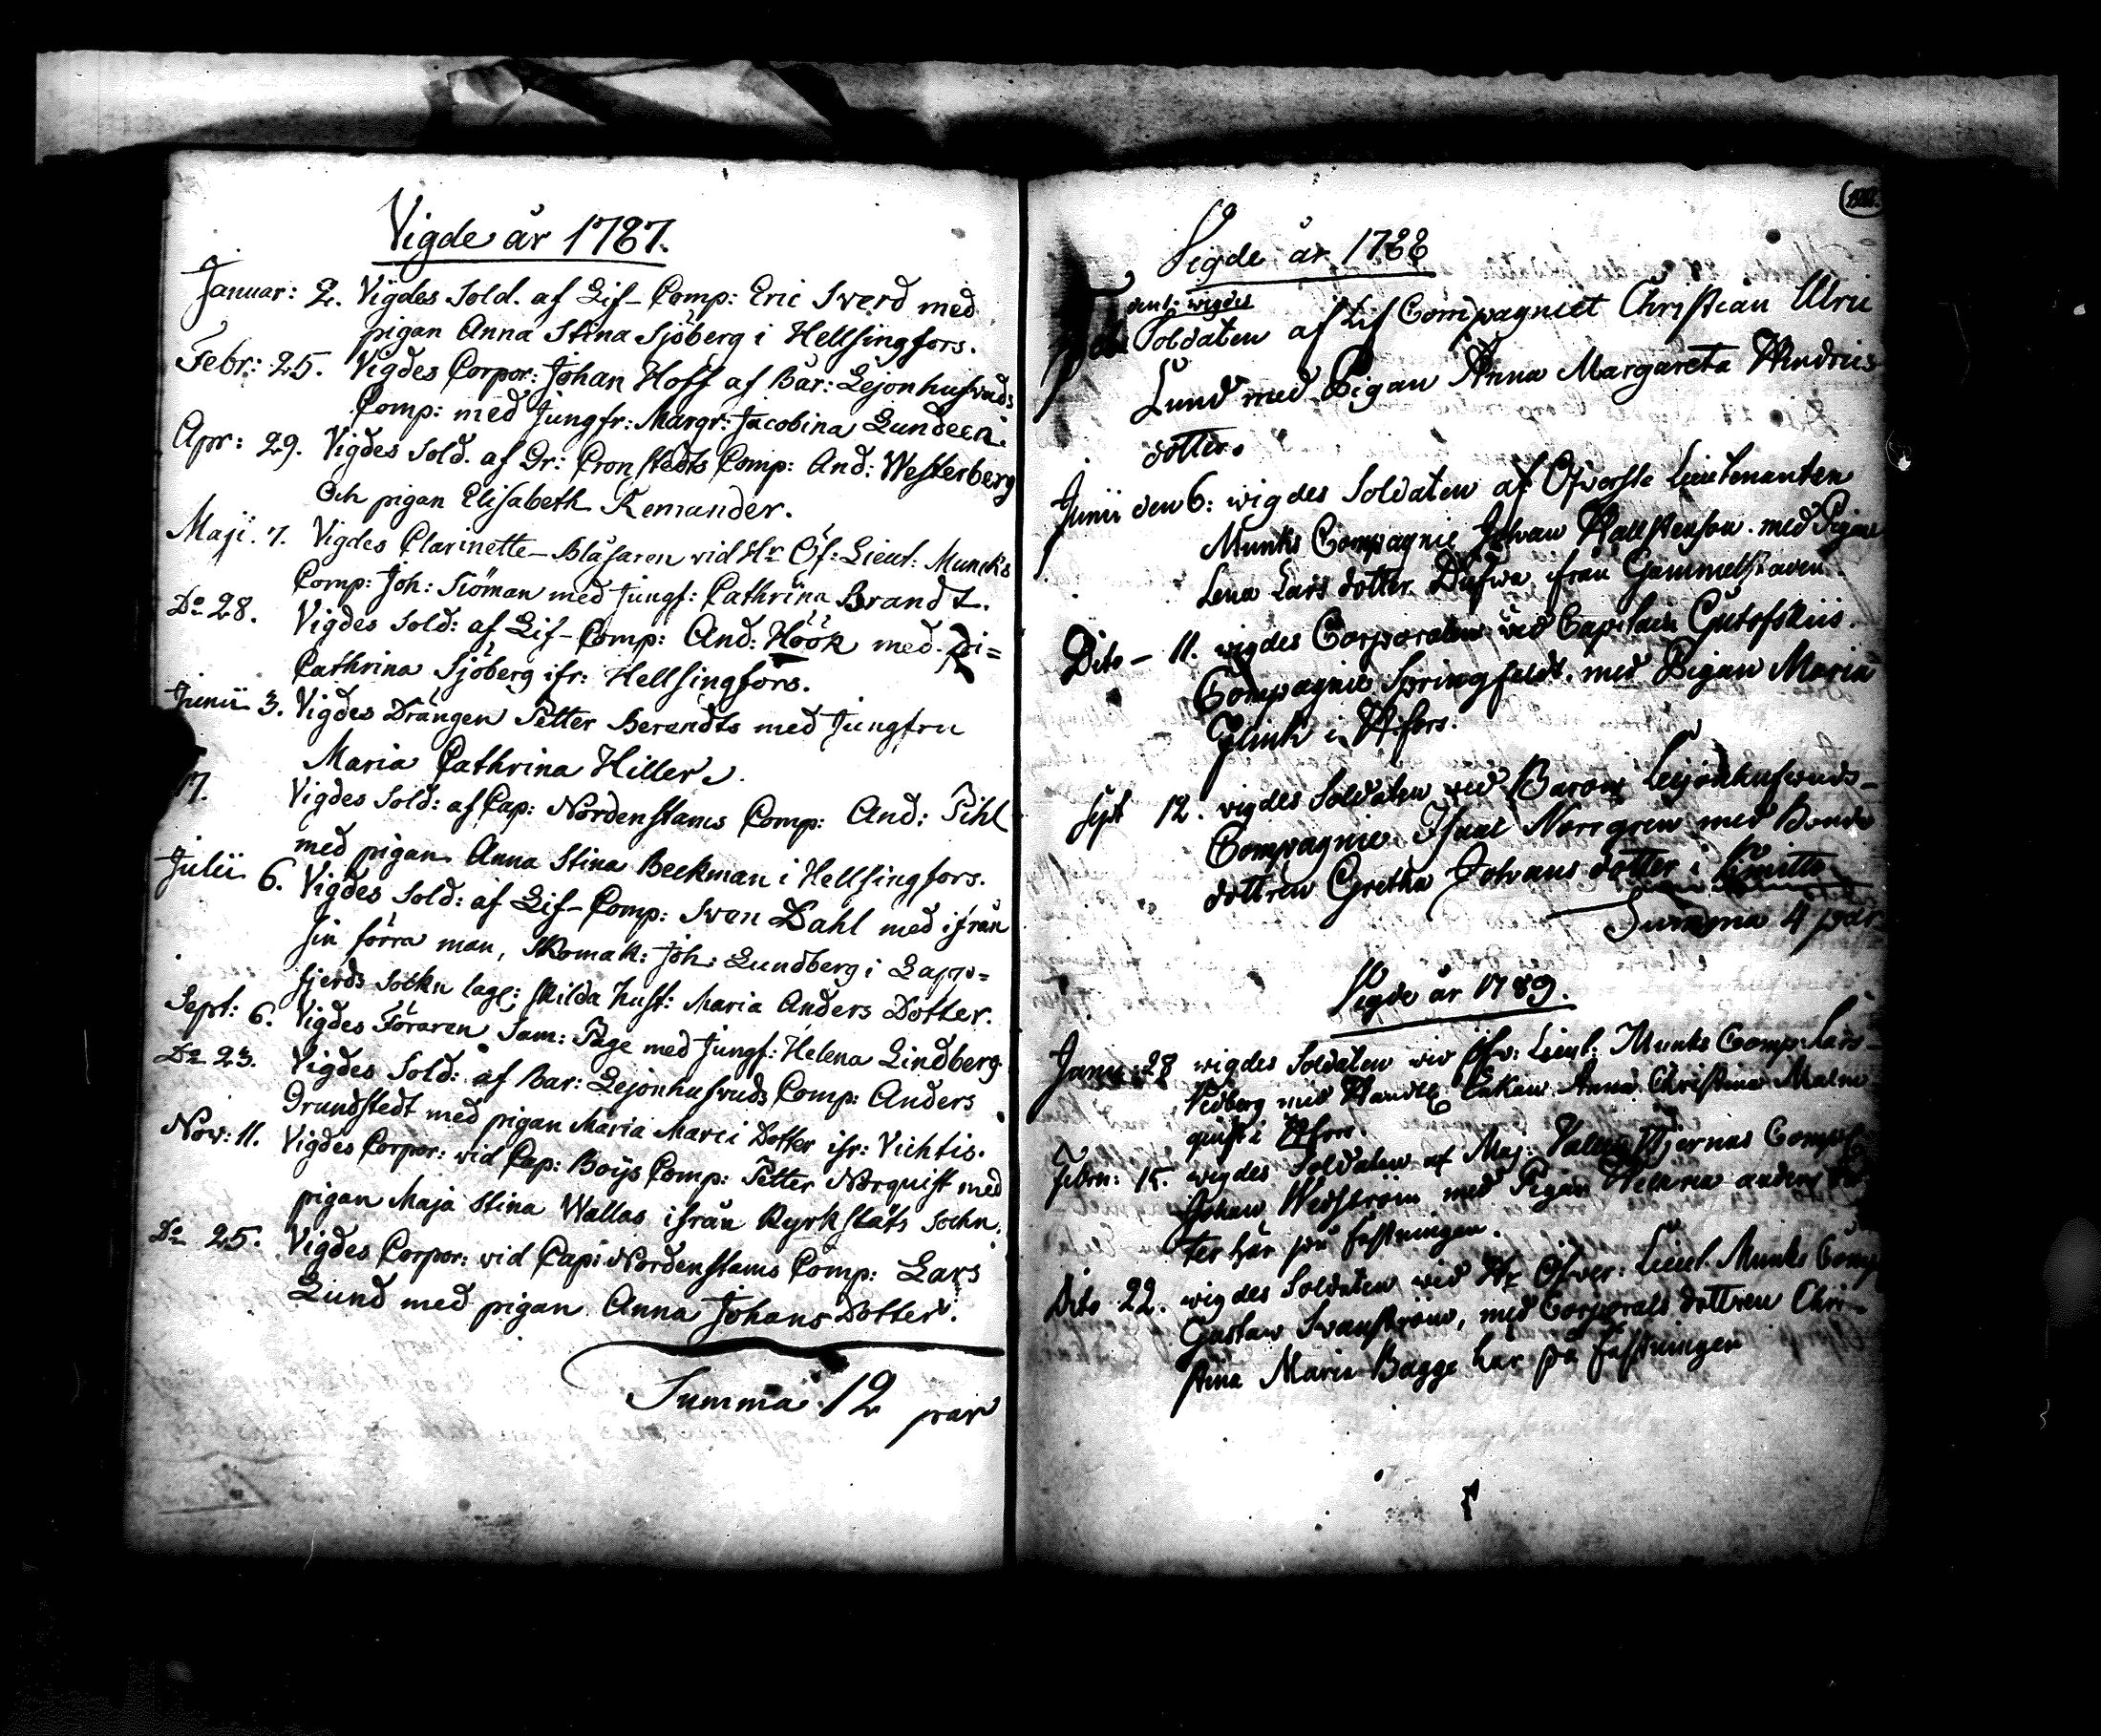 Vigde år 1787.
Januar: 2. Vigdes Sold. af Lif-Comp: Eric Sverd med
pigan Anna Stina Sjöberg i Hellsingfors.
Febr: 25. Vigdes Corpor: Johan Hoff af Bar: Lejonhufvuds
Comp: med Jungfr: Margr: Jacobina Lundeen.
Apr: 29. Vigdes Sold. af Gr: Cronstedts Comp: And: Westerberg
Och pigan Elisabeth Remander.
Maji. 7. Vigdes Clarinette-Blåsaren vid Hr Öf: Lieut: Muncks
Comp: Joh: Siöman med Jungf: Cathrina Brandt.
Do 28. Vigdes Sold: af Lif-Comp: And: Höök med
Cathrina Sjöberg ifr: Hellsingfors.
Junii 3. Vigdes Drängen Petter Berendts med Jungfru
Maria Cathrina Hiller.
17. Vigdes Sold: af Cap: Nordenstams Comp: And: Pihl
med pigan Anna Stina Beckman i Hellsingfors.
Julii 6. Vigdes Sold: af Lif-Comp: Sven Dahl med ifrån
sin förra man, Skomak: Joh: Lundberg i Lapp=
fjerds Sockn lagl: skilda hust: Maria Anders Dotter.
Sept: 6. Vigdes Föraren Sam: Page med Jungf: Helena Lindberg
Do 23. Vigdes Sold: af Bar: Lejonhufvuds Comp: Anders
Grundstedt med pigan Maria Marci Dotter ifr: Vichtis.
Nov: 11. Vigdes Corpor: vid Cap: Boijs Comp: Petter Norquist med
pigan Maja Stina Wallas ifrån Kyrkstäts Sockn.
Do 25. Vigdes Corpor: vid Cap: Nordenstams Comp: Lars
Lund med pigan Anna Johans Dotter.
Summa 12 par
Vigde år 1788
wigdes
Soldaten af Lif Compagniet Christian Ulric
Lund med Pigan Anna Margareta Hindrics
dotter.
Junii den 6: wigdes Soldaten af Öfverste Lieutenanten
Munks Compagnie Johan Hallstenson med Pigan
Lena Lars dotter Dufwa ifrån Gammelstaden.
Dito - 11. wigdes Corporalen wid Capitain Gutofskiis
Compagnie Springfeldt med Pigan Maria
Flink i H:fors.
Sept 12. wigdes Soldaten wid Baron Leijonhufwuds-
Compagnie Isaac Norrgren med Bonde
dottren Gretha Johans dotter i
Summa 4 par
Vigde år 1789.
Janu: 28 wigdes Soldaten wid Öfv: Lieut: Munks Comp: Lars
Vedberg med Enkan Anna Christina Malm
quist i H:fors.
Febru: 15. wigdes Soldaten af Maj: Compl
Johan Weström med Pigan Helena anders
ter här på fästningen.
Dito 22. wigdes Soldaten wid Hr Öfver: Lieut. Munks Comp
Gustaw Swanström, med Corporals dottren Chri-
stina Maria Bagge här på fästningen